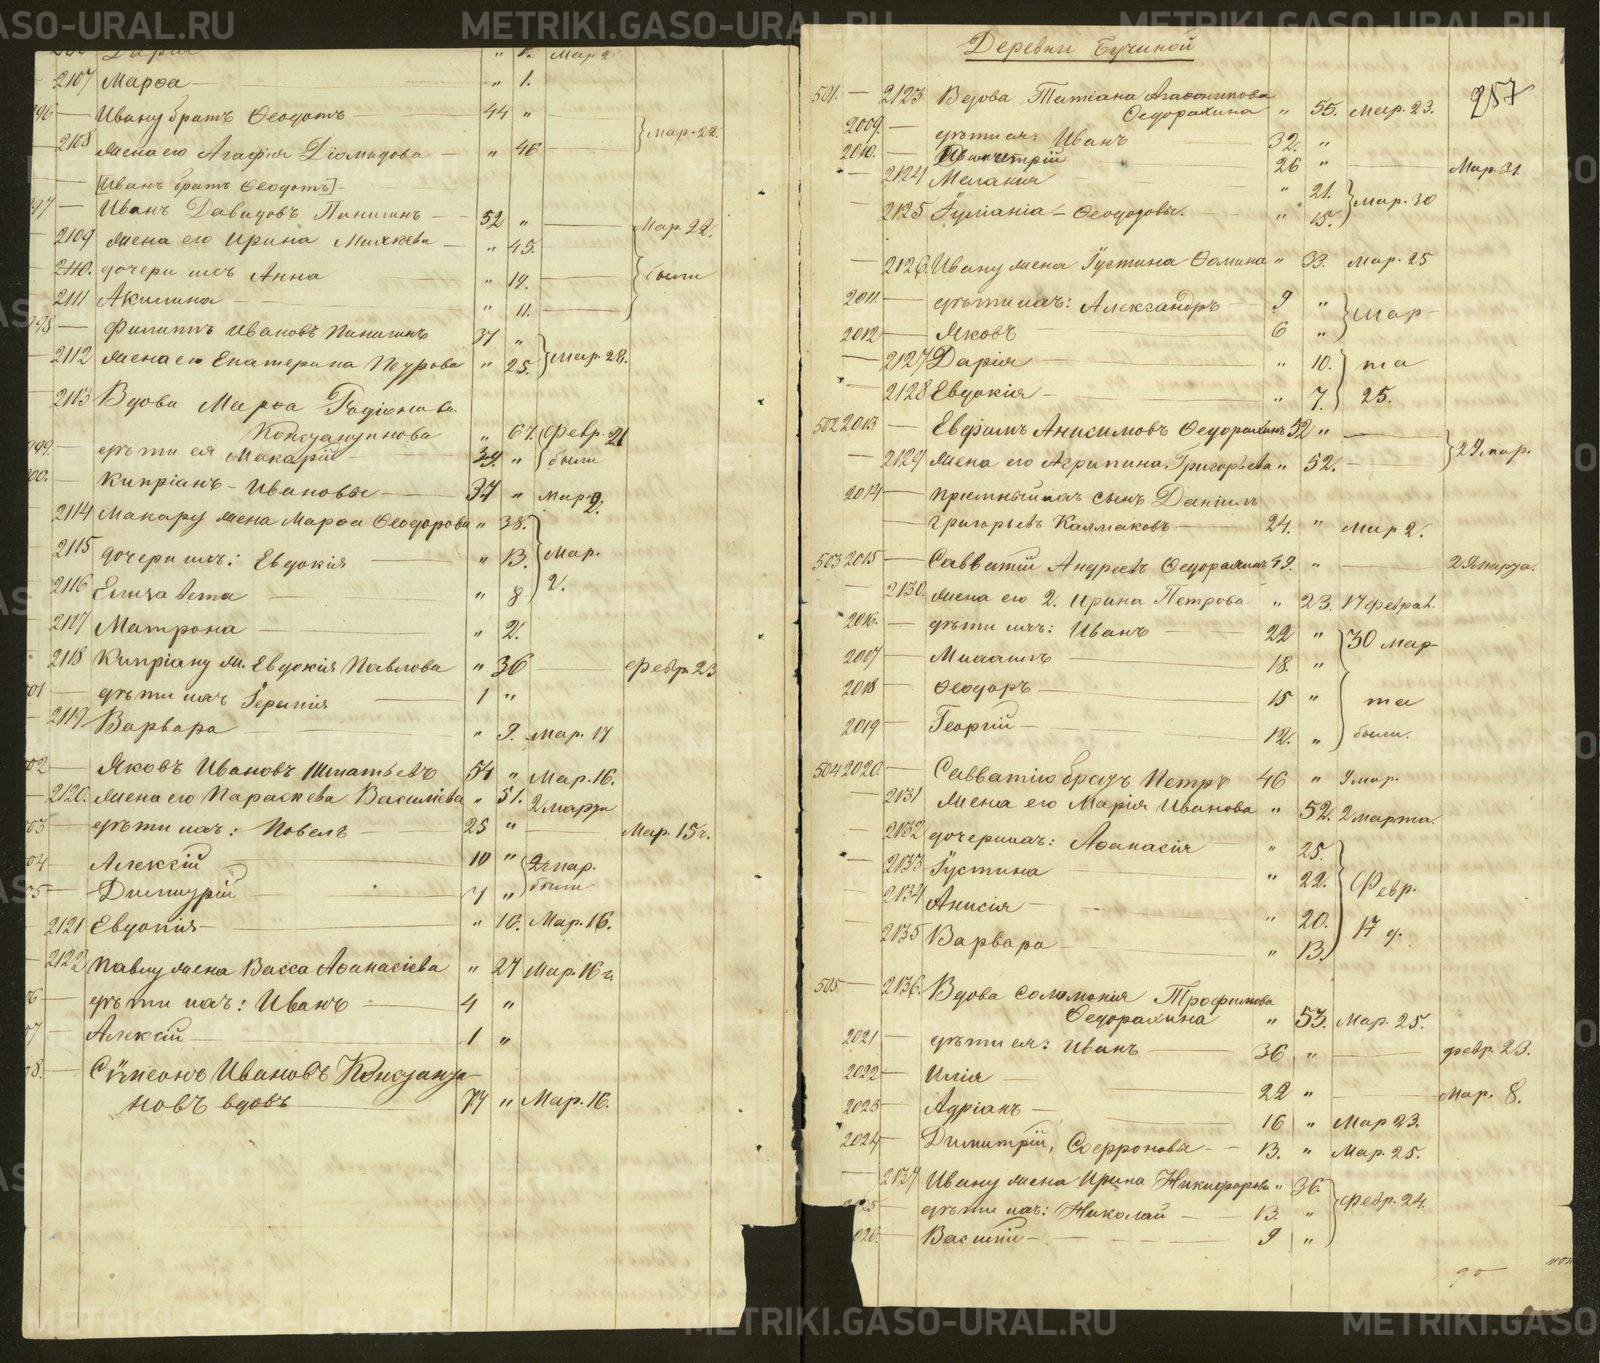 Дарія " 1. Мар 2
2107 Марѳа — " 1.
Ивану братъ Ѳеодотъ 44 "
2108 жена его Агафія Діомидова — " 46 Мар. 22.
[Иванъ братъ Ѳеодотъ]
97 — Иванъ Давидовъ Паникинъ — 52 " Мар. 22.
2109 жена его Ирина — " 45.
2110. дочери ихъ Анна " 19. были
2111 Акилина " 11.
Филиппъ Ивановъ 37 "
2112 жена его Екатерина " 25. Мар. 28.
2113 Вдова Марѳа Родіонова
Константинова " 67. Февр. 21
дѣти ея Макарій 39. " были
Кипріанъ — Ивановы — 37 " Мар. 2.
2114 Макару жена Марѳа Ѳеодорова " 38.
2115 дочери ихъ: Евдокія " 13. Мар.
2116 Елизавета " 8 2.
2117 Матрона " 2.
2118 Кипріану ж. Евдокія Павлова " 36 Февр. 23
01 — дѣти ихъ 1 "
2119 Варвара " 9. Мар. 17
02 — Яковъ Ивановъ Игнатьевъ 54 " Мар. 16.
2120. жена его Параскева Василіева " 51. 2 марта
03 дѣти ихъ: Павелъ 25 " Мар. 15 ч.
04 Алексій 10 " 2 мар.
05 — Димитрій 7 " были
2121 Евдокія " 10. Мар. 16.
2122 Павлу жена Васса Аѳанасіева " 27 Мар. 16 ч.
06 — дѣти ихъ: Иванъ 4 "
07 — Алексій 1 "
08. — Симеонъ Ивановъ Константи-
новъ вдовъ 74 " Мар. 16.
Деревни Бучиной
257
501. — 2123 Вдова Татіана Агаѳоникова
Ѳедорахина " 55. Мар. 23.
2009. — дѣти ея: Иванъ 32. "
2010. — Димитрій 26 " Мар. 31.
2124 Мелания " 21.
2125 Іуліанія — Ѳеодоровы. " 15. Мар. 30
2126. Ивану жена Іустина Ѳомина " 33. Мар. 25
2011. — дѣти ихъ: Александръ 9 " Мар-
2012 — Яковъ 6 "
2127 Дарія " 10. та
2128 Евдокія " 7. 25.
502 2013 — Евѳимъ Анисимовъ Ѳедорахинъ 52 "
2129 жена его Агрипина Григорьева " 52. 29. мар.
2014 — пріемный ихъ сынъ Даніилъ
Григорьевъ Калмаковъ 24. " Мар 2.
503 2015 — Савватій Андреевъ Ѳедорахинъ 49. " 29 марта.
2130. жена его 2. Ирина Петрова " 23. 17 февраł.
2016. — дѣти ихъ: Иванъ 22 " 30 мар-
2017 — 18. "
2018 — Ѳеодоръ 15 " та
2019 — Георгій 12. " были.
504 2020. — Савватію братъ Петръ 46 " 9 мар.
2131 жена его Марія Иванова " 52. 2 марта.
2132 дочери ихъ: Аѳанасія " 25.
2133 Іустина " 22. Февр.
2134 Анисія " 20.
2135 Варвара " 13. 17 д.
505. — 2136. Вдова Соломонія Трофимова
Ѳедорахина " 53. Мар. 25.
2021 — дѣти ея: Иванъ 36 " февр. 23.
2022 — Илія 22 " Мар. 8.
2023 — Адріанъ 16 " Мар 23.
2024 — Димитрій, Софроновы — 13. " Мар. 25.
2137 Ивану жена Ирина Никифорова " 36
2025 — дѣти ихъ: Николай — 13. " Февр. 24.
2026. — Василій — 9 "